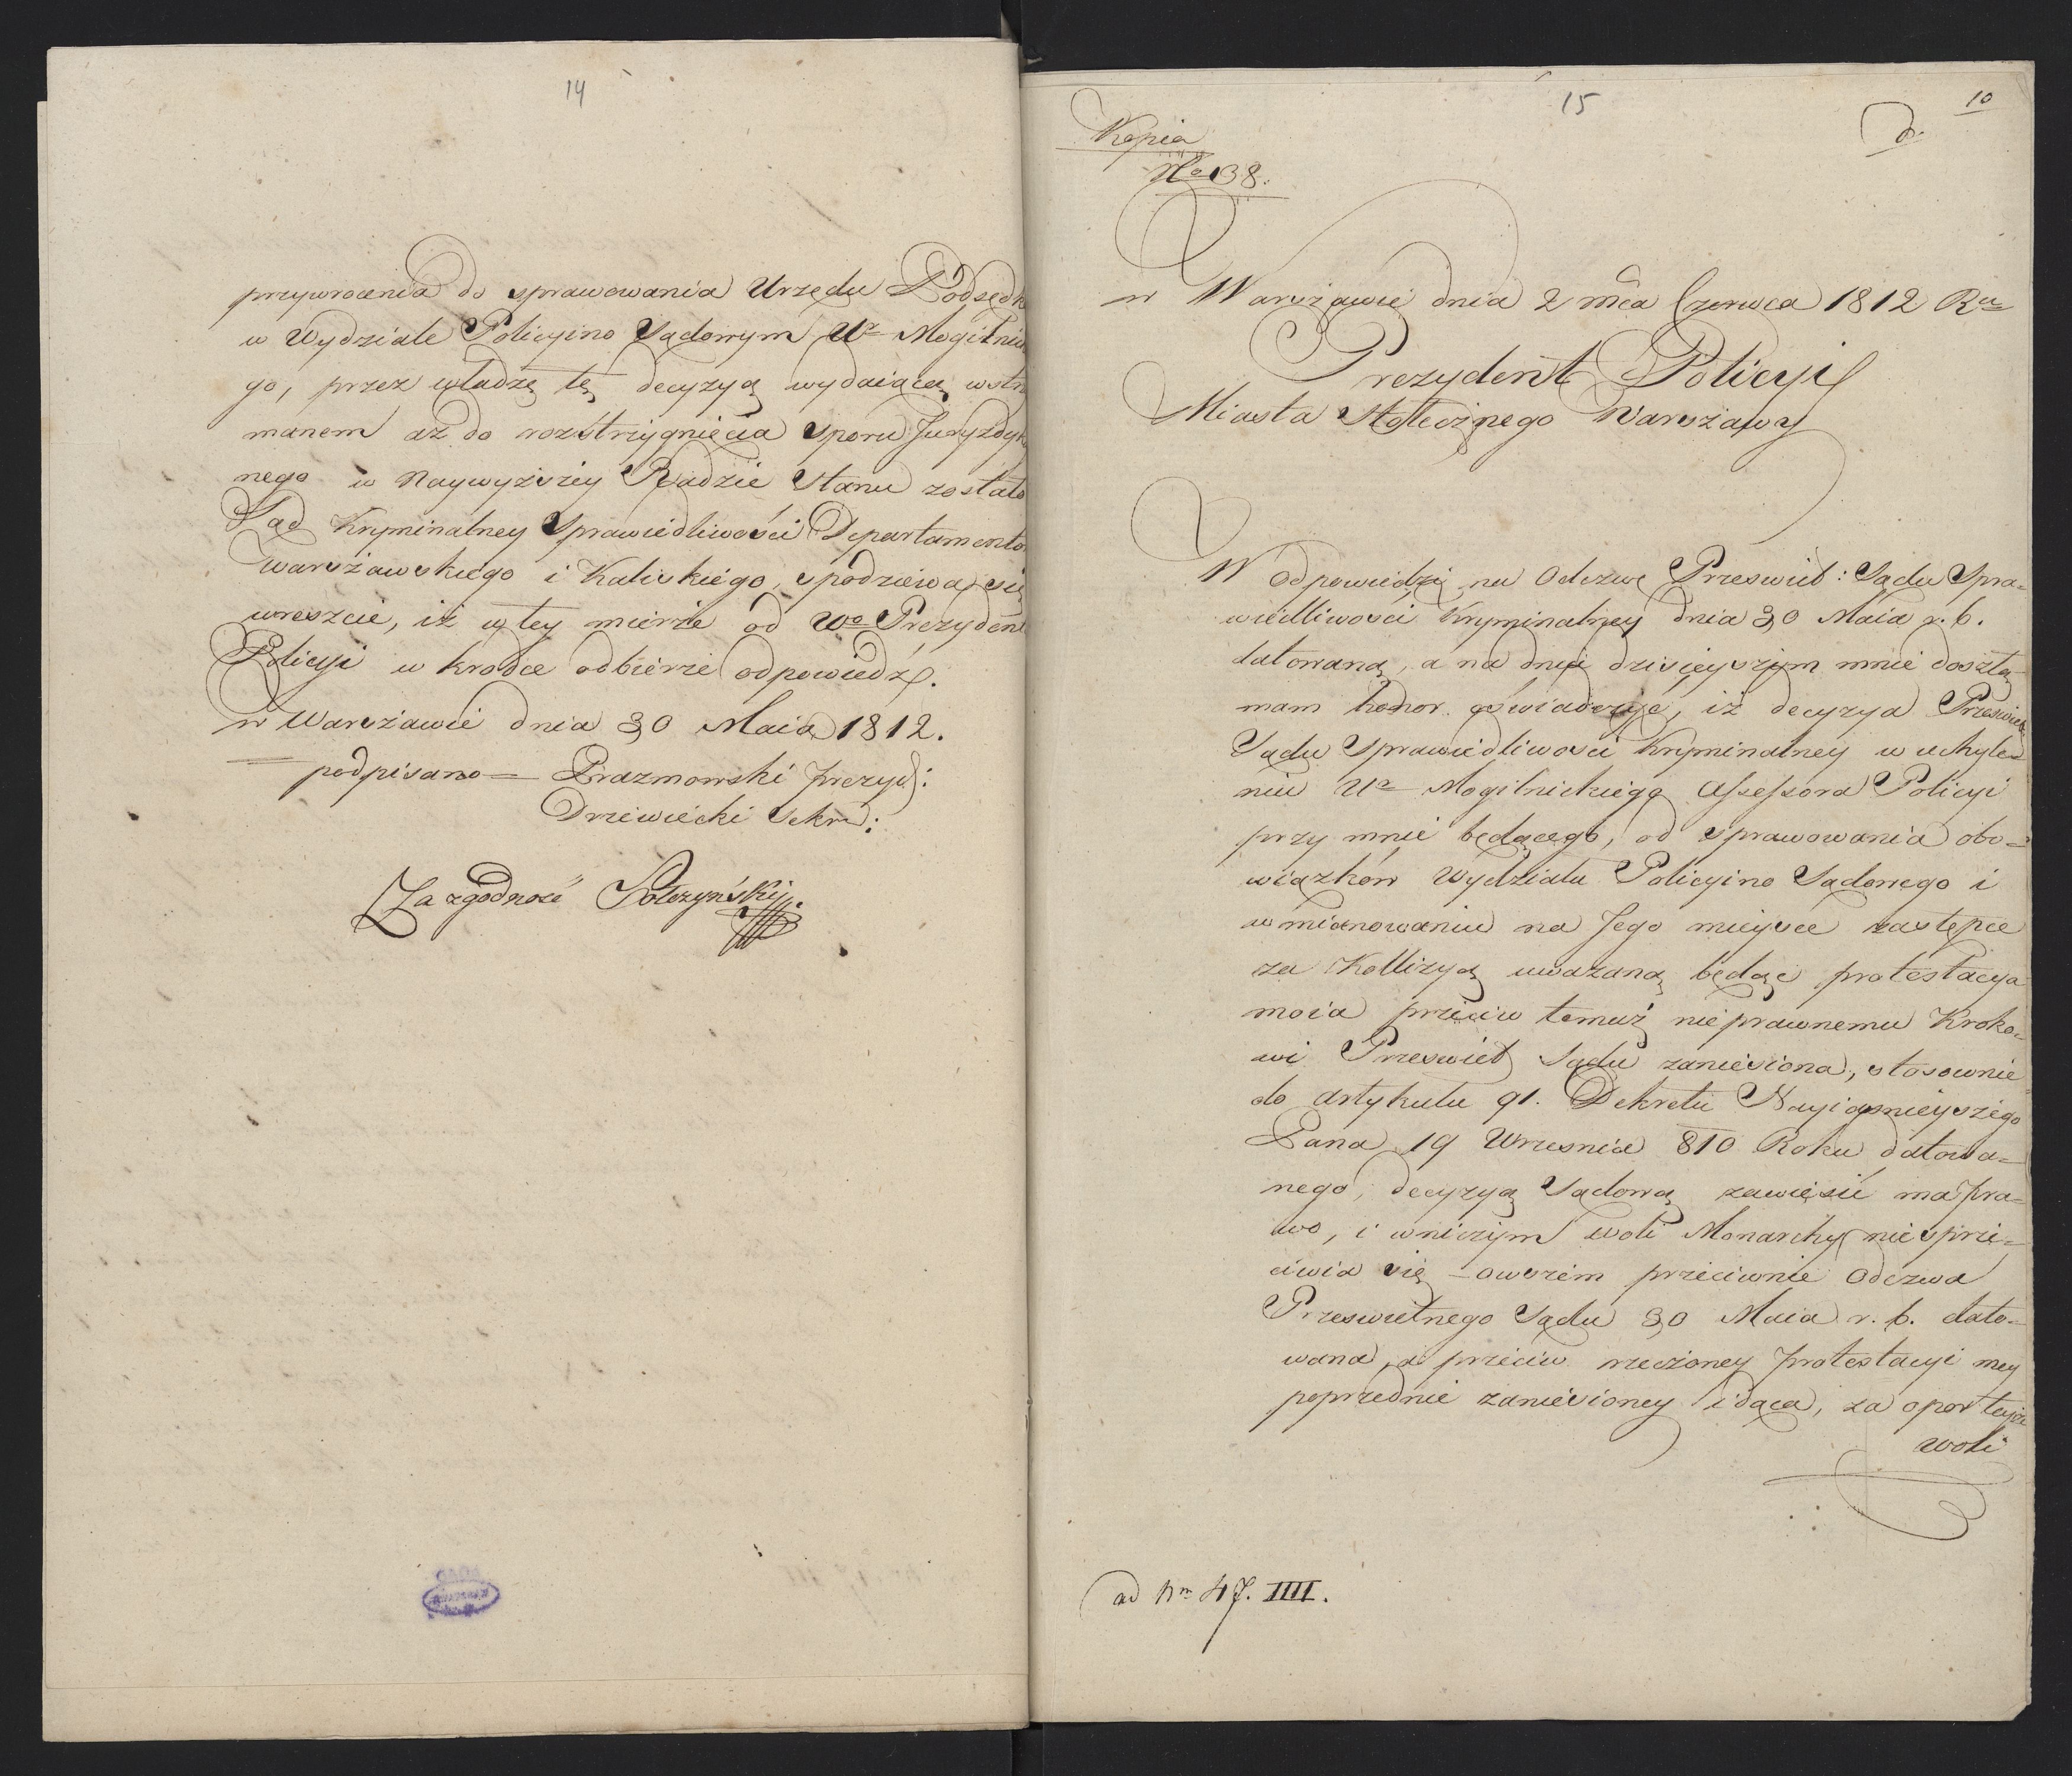 14
przywrocenia do sprawowania Urzędu Podsędk
w Wydziale Policyino Sądowym Ur Mogilnic
go, przez władzę tę decyzyą wydaiącą wstrz
manem aż do rozstrzygnięcia sporu Juryzdyk
nego w Naywyższey Radzie Stanu zostało
Sąd Kryminalney Sprawiedliwości Departamento
Warszawskiego i Kaliskiego, spodziewa się
wreszcie, iż w tey mierze od Wo Prezydent
Policyi w krotce odbierze odpowiedź.
w Warszawie dnia 30 Maia 1812.
podpisano = Prazmowski prezyd:
Drzewiecki Sekr:
Za zgodność
15
10
Kopia
No 138.
w Warszawie dnia 2 mca Czerwca 1812 Ru
Prezydent Policyi
Miasta Stołecznego Warszawy
W odpowiedzi na Odezwę Przeswiet: Sądu Spra-
wiedliwości Kryminalney dnia 30 Maia r. b.
datowaną, a na dniu dzisieyszym mnie doszłą
mam honor oświadczyć, iż decyzya Przeswiet
Sądu Sprawiedliwości Kryminalney w uchyle-
niu Ur Mogilnickiego Assessora Policyi
przy mnie będącego, od sprawowania obo-
wiązków Wydziału Policyino Sądowego i
w mianowaniu na Jego mieysce zastępce
za Kollizyą uważaną będąc protestacya
moia przeciw temuż nieprawnemu Kroko-
wi Przeswiet Sądu zaniesiona, stosownie
do Artykułu 91. Dekretu Nayiaśnieyszego
Pana 19 Wrzesnia 810 Roku datowa-
nego, decyzyą Sądową zawiesić ma pra-
wo, i w niczym woli Monarchy nie sprze-
ciwia się – owszem przeciwnie Odezwa
Przeswietnego Sądu 30 Maia r. b. dato-
wana, a przeciw rzeczoney protestacyi mey
poprzednie zaniesioney idąca, za opor teyże
woli
ad Nm 47. IIII.